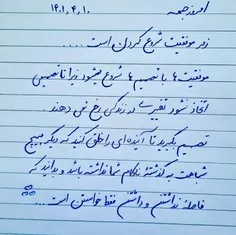 امروز جمعه ۱۴۰۱,۴,۱۰
رمز موفقیت شروع کردن است.....
موفقیت ها با تصمیم ها شروع میشود زیرا تا تصمیمی
اتخاذ نشود تغییرات در زندگی رخ نمی دهند.
تصمیم بگیرید تا آینده‌ای را خلق کنید که دیگر هیچ
شباهت به گذشته ناکام شما نداشته باشد و بدانید که
فاصله نداشتن و داشتن فقط خواستن است...